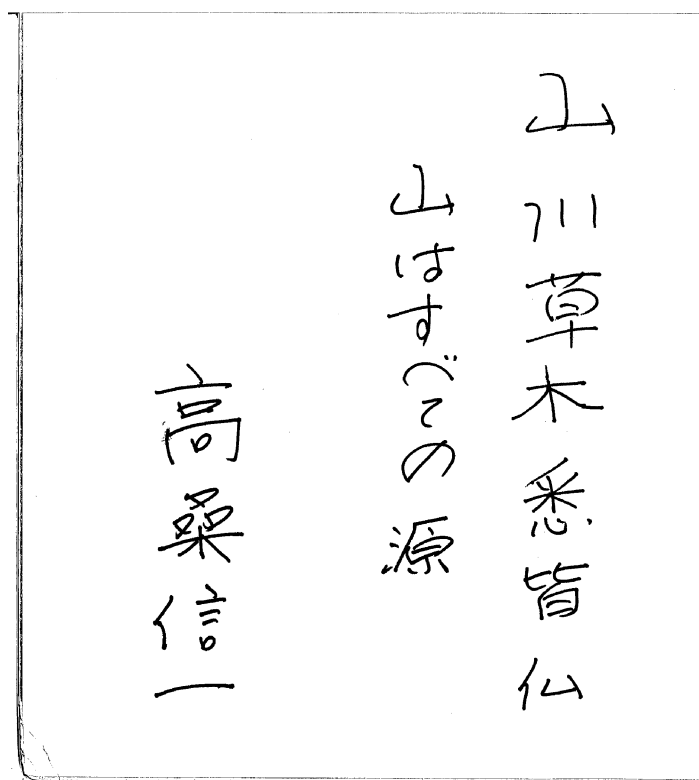 山川草木悉皆仏
山はすべての源
高桑信一